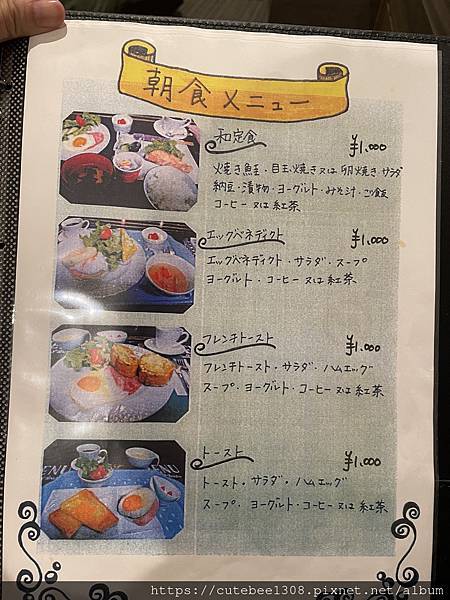 朝食メニュー
和定食 ¥1,000
焼き鮭・目玉焼き又は卵焼き サラダ
納豆・漬物・ヨーグルト・みそ汁・ご飯
コーヒー 又は 紅茶
エッグベネディクト ¥1,000
エッグベネディクト・サラダ・スープ
ヨーグルト・コーヒー 又は 紅茶
フレンチトースト ¥1,000
フレンチトースト・サラダ・ハムエッグ
スープ・ヨーグルト・コーヒー 又は 紅茶
トースト ¥1,000
トースト・サラダ・ハムエッグ
スープ・ヨーグルト・コーヒー 又は 紅茶
https://cutebee1308.pixnet.net/album